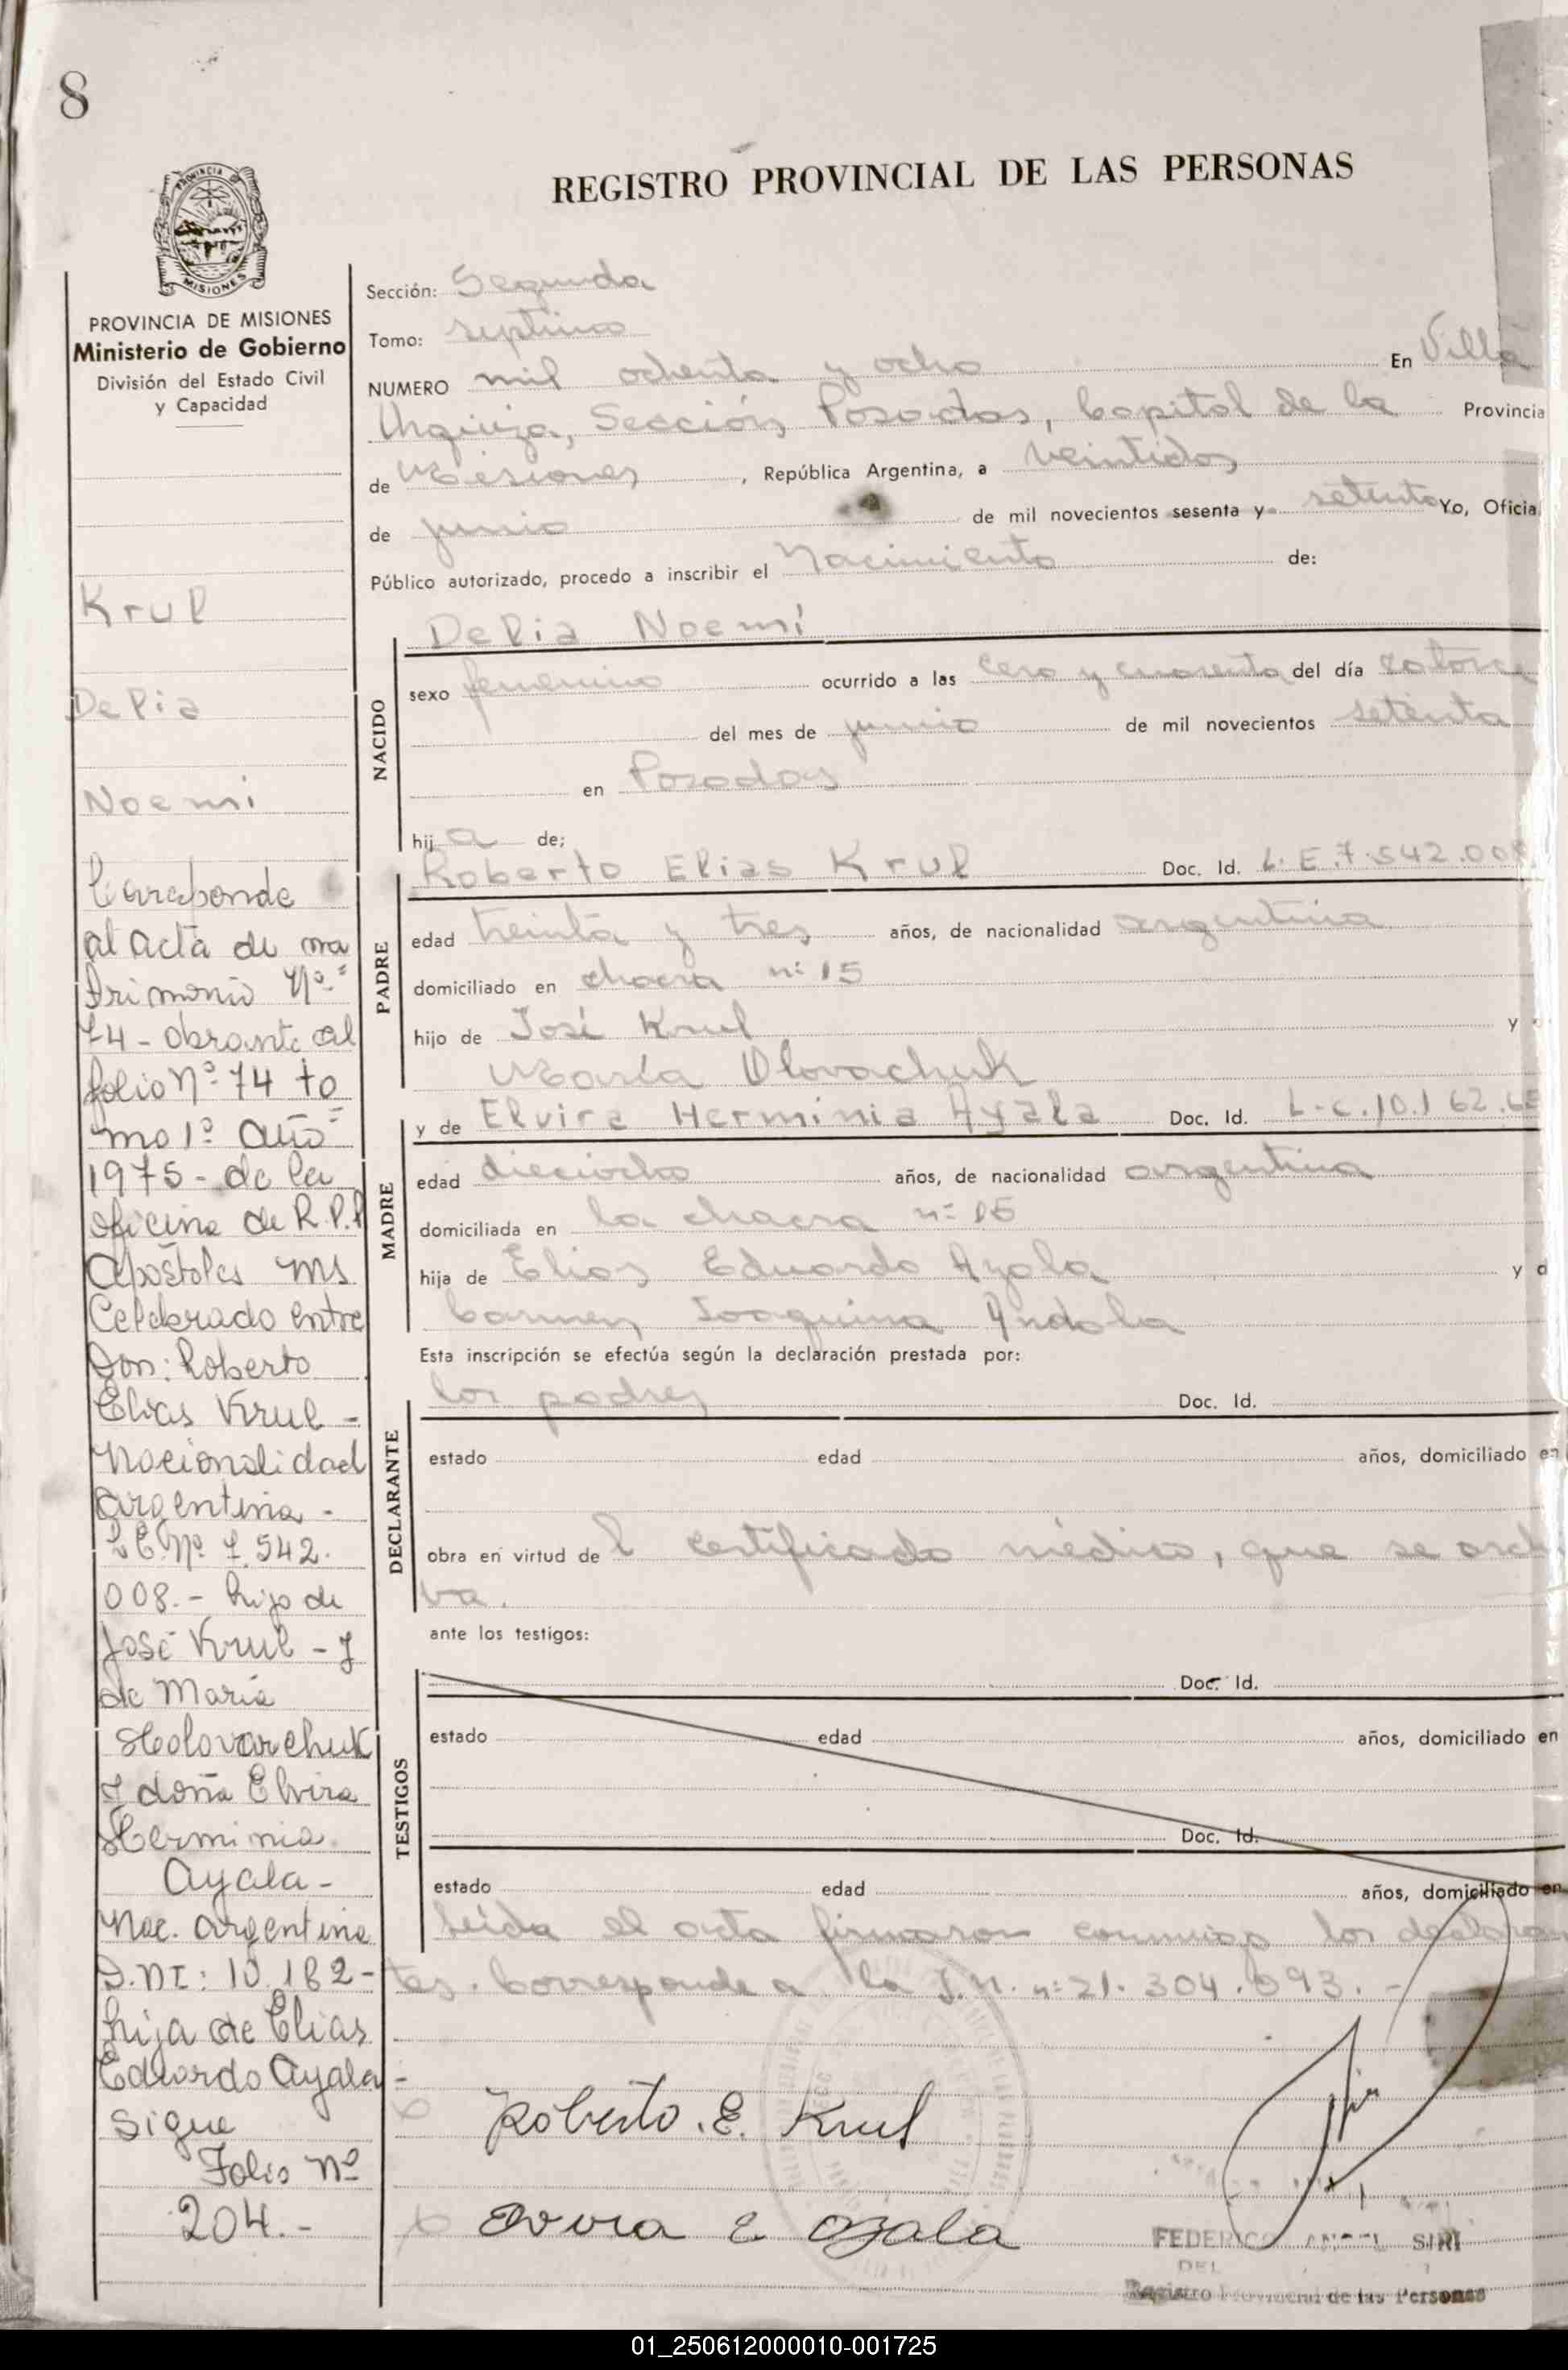 8
REGISTRO PROVINCIAL DE LAS PERSONAS
PROVINCIA DE
MISIONES
PROVINCIA DE MISIONES
Ministerio de Gobierno
División del Estado Civil
y Capacidad
Krul
Delia
Noemi
Correbonde
al acta de ma
trimonio Nº=
74 - obrante al
folio Nº 74 to
mo 1º año=
1975 - de la
oficina de R.P.P
Apóstoles Ms
Celebrado entre
Don: Roberto
Elias Krul -
Nacionalidad
argentina -
L E. Nº 7.542.
008. - hijo de
José Krul - y
de Maria
Holovarchuk
y doña Elvira
Herminia
Ayala -
Nac. argentina
D.NI: 10.162 -
hija de Elias
Eduardo Ayala -
sigue
Folio Nº
204. -
Sección: Segunda
Tomo: septimo
NUMERO mil ochenta y ocho En Villa
Urquiza, Sección Posadas, Capital de la Provincia
de Misiones, República Argentina, a veintidos
de junio de mil novecientos sesenta y setenta Yo, Oficia
Público autorizado, procedo a inscribir el Nacimiento de:
NACIDO
Delia Noemí
sexo femenino ocurrido a las cero y cuarenta del día catorce
del mes de junio de mil novecientos setenta
en Posadas
hij a de;
PADRE
Roberto Elias Krul Doc. Id. L.E.7.542.008
edad treinta y tres años, de nacionalidad argentina
domiciliado en chacra nº 15
hijo de José Krul y
María Olovachuk
MADRE
y de Elvira Herminia Ayala Doc. Id. L.C.10.162.
edad dieciocho años, de nacionalidad argentina
domiciliada en la chacra nº 15
hija de Elias Eduardo Ayala y d
Carmen Joaquina Andola
Esta inscripción se efectúa según la declaración prestada por:
DECLARANTE
los padres Doc. Id.
estado edad años, domiciliado en
obra en virtud de l certificado médico, que se archi
va.
ante los testigos:
TESTIGOS
Doc. Id.
estado edad años, domiciliado en
Doc. Id.
estado edad años, domiciliado en
Leida el acta firmaron conmigo los declaran
tes. Corresponde a la I.N. nº 21.304.093. -
Roberto. E. Krul
Ayala
FEDERICO ANGEL SIRI
DEL
Registro Provincial de las Personas
01_250612000010-001725